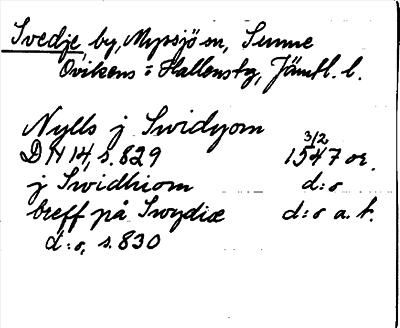 Svedje, by, Myssjö sn, Sunne
Ovikens o Hallens tg, Jämtl. l.
Nylls j Swidyom
3/2
DN 14, s. 829 1547 or.
j Swidhiom d:o
breff på Swydiæ d:o a.t.
d:o, s. 830